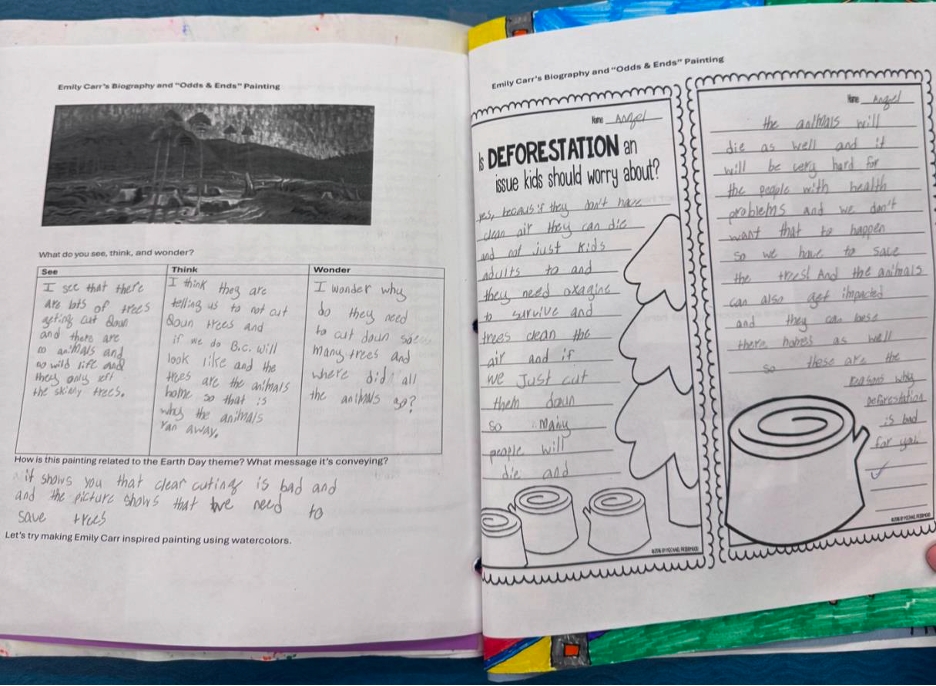 Emily Carr's Biography and "Odds & Ends" Painting
What do you see, think, and wonder?
See
I see that there
are lots of trees
geting cut doun
and there are
no animals and
no wild life and
they only eft
the skiny trees.
Think
I think they are
telling us to not cut
doun trees and
if we do B.C. will
look like and the
trees are the animals
home so that is
why the animals
ran away.
Wonder
I wonder why
do they need
to cut down so
many trees and
where did all
the animals go?
How is this painting related to the Earth Day theme? What message it's conveying?
it shows you that clear cuting is bad and
and the picture shows that we need to
save trees
Let's try making Emily Carr inspired painting using watercolors.
Emily Carr's Biography and "Odds & Ends" Painting
Name Angel
Is DEFORESTATION an
issue kids should worry about?
yes, becaus if they don't have
clean air they can die
and not just kids
adults to and
they need oxagine
to survive and
trees clean the
air and if
we Just cut
them down
so many
people will
die and
©2016 BY MICHAEL FRIERMOOD
Name Angel
the animals will
die as well and it
will be very hard for
the people with health
problems and we don't
want that to happen
so we have to save
the trees! And the animals
can also get impacted
and they can lose
there homes as well
so these are the
reasons why
deforestation
is bad
for you